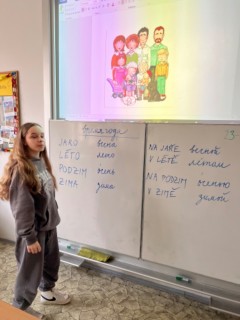 JARO весна
LÉTO лето
PODZIM осень
ZIMA зима
NA JAŘE весной
V LÉTĚ летом
NA PODZIM осенью
V ZIMĚ зимой